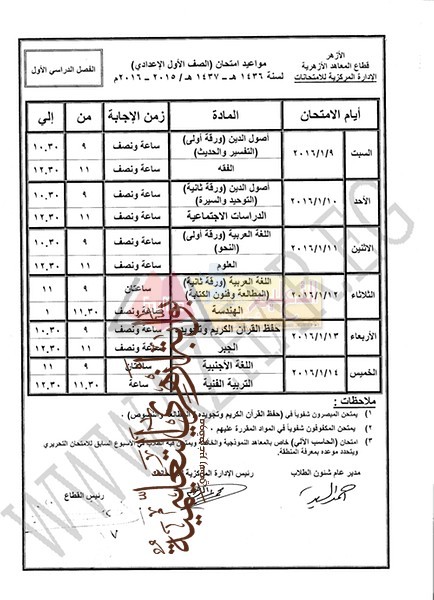 الأزهر
قطاع المعاهد الأزهرية
الإدارة المركزية للامتحانات
مواعيد امتحان (الصف الأول الإعدادي)
لسنة ١٤٣٦ هـ - ١٤٣٧ هـ / ٢٠١٥ - ٢٠١٦م
الفصل الدراسي الأول
أيام الامتحان المادة زمن الإجابة من إلي
السبت ٢٠١٦/١/٩ أصول الدين (ورقة أولى) (التفسير والحديث) ساعة ونصف ٩ ١٠.٣٠
الفقه ساعة ونصف ١١ ١٢.٣٠
الأحد ٢٠١٦/١/١٠ أصول الدين (ورقة ثانية) (التوحيد والسيرة) ساعة ونصف ٩ ١٠.٣٠
الدراسات الاجتماعية ساعة ونصف ١١ ١٢.٣٠
الاثنين ٢٠١٦/١/١١ اللغة العربية (ورقة أولى) (النحو) ساعة ونصف ٩ ١٠.٣٠
العلوم ساعة ونصف ١١ ١٢.٣٠
الثلاثاء ٢٠١٦/١/١٢ اللغة العربية (ورقة ثانية) (المطالعة وفنون الكتابة) ساعتان ٩ ١١
الهندسة ساعة ونصف ١١.٣٠ ١
الأربعاء ٢٠١٦/١/١٣ حفظ القرآن الكريم وتجويده ساعة ونصف ٩ ١٠.٣٠
الجبر ساعة ونصف ١١ ١٢.٣٠
الخميس ٢٠١٦/١/١٤ اللغة الأجنبية ساعتان ٩ ١١
التربية الفنية ساعة ١١.٣٠ ١٢.٣٠
ملاحظات :
١) يمتحن المبصرون شفوياً في (حفظ القرآن الكريم وتجويده
٢) يمتحن المكفوفون شفوياً في المواد المقررة عليهم .
٣) امتحان (الحاسب الآلي) خاص بالمعاهد النموذجية والخاصة في الأسبوع السابق للامتحان التحريري
ويتحدد موعده بمعرفة المنطقة.
مدير عام شئون الطلاب
رئيس الإدارة المركزية
رئيس القطاع